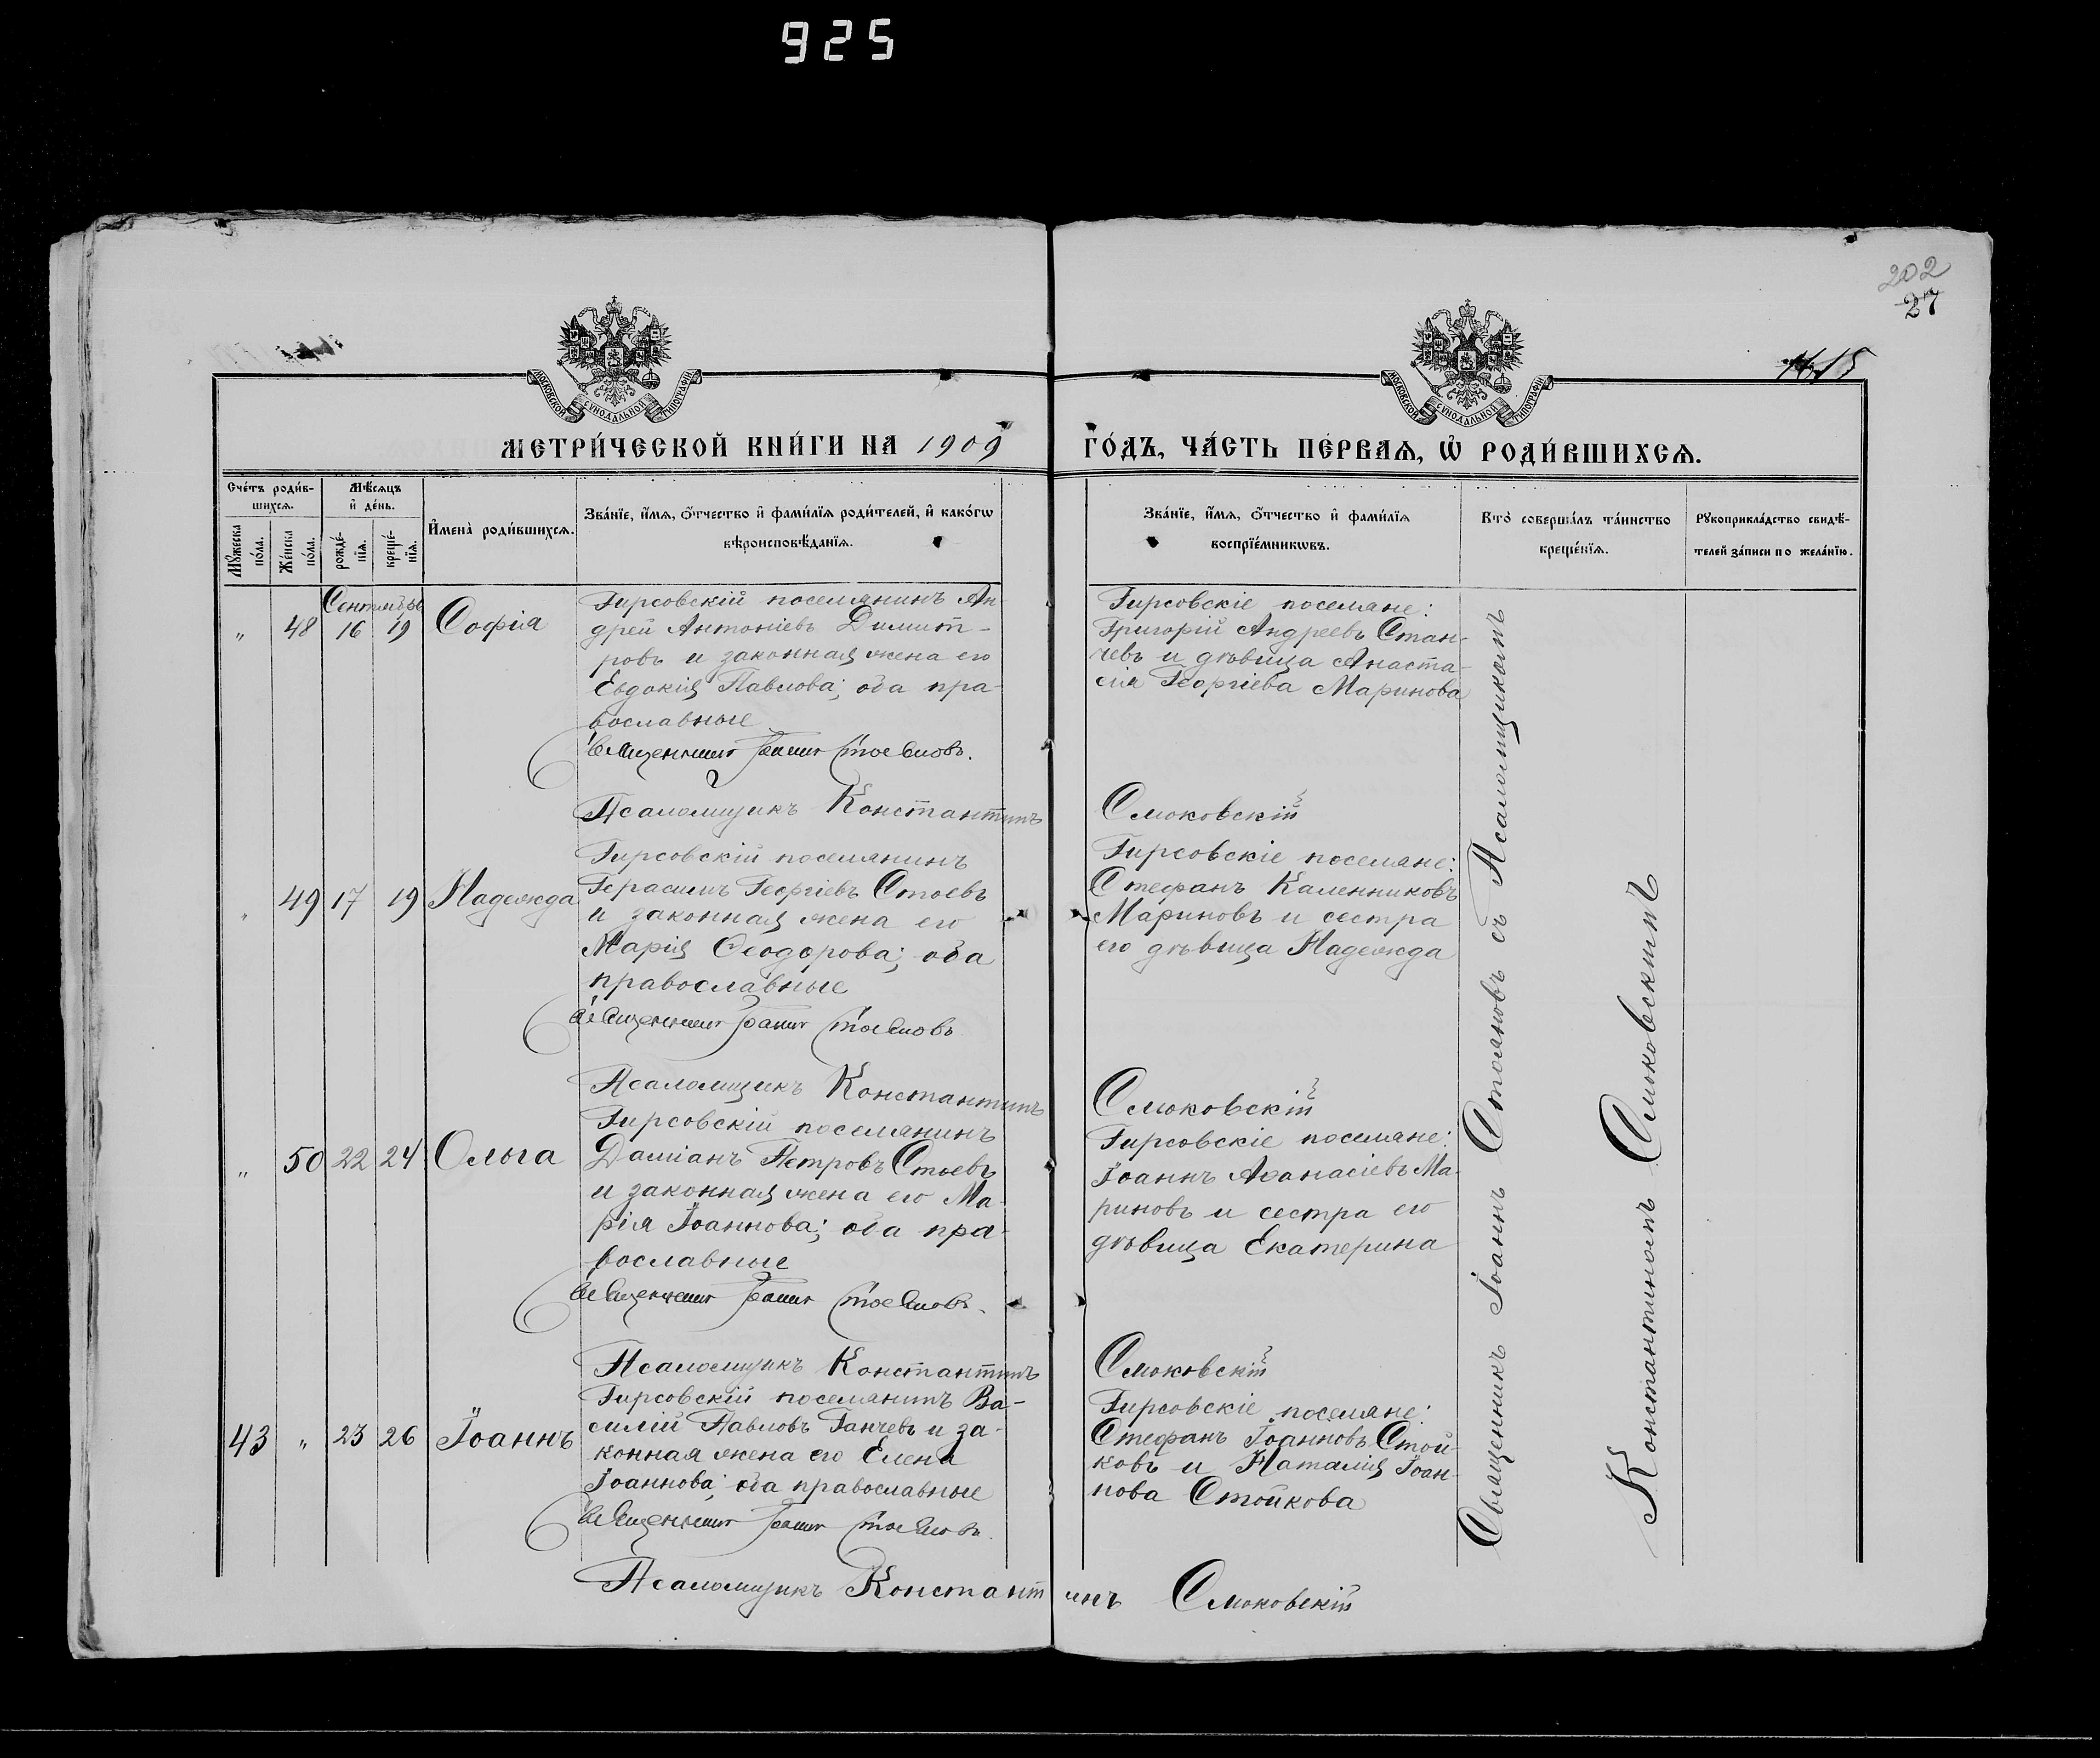 925
202
27
15
МОСКОВСКОЙ СѴНОДАЛЬНОЙ ТИПОГРАФІИ
МОСКОВСКОЙ СѴНОДАЛЬНОЙ ТИПОГРАФІИ
МЕТРИ́ЧЕСКОЙ КНИ́ГИ НА 1909 ГО́ДЪ, ЧА́СТЬ ПЕ́РВАѦ, Ѡ҆ РОДИ́ВШИХСѦ.
Сче́тъ роди́в-
шихсѧ.
Мꙋ́жеска по́ла.
Же́нска по́ла.
Мѣ́сѧцъ
и҆ де́нь.
рожде́-нїѧ.
креще́-нїѧ.
И҆мена̀ роди́вшихсѧ.
Зва́нїе, и҆́мѧ, ѻ҆́тчество и҆ фами́лїѧ роди́телей, и҆ како́гѡ
вѣроисповѣ́данїѧ.
Зва́нїе, и҆́мѧ, ѻ҆́тчество и҆ фами́лїѧ
воспрїе́мникѡвъ.
Кто̀ соверша́лъ та́инство
креще́нїѧ.
Рꙋкоприкла́дство свидѣ́-
телей за́писи по жела́нїю.
Сентябрь
" 48 16 19 Софія
Гирсовскій поселянинъ Ан-
дрей Антоніевъ Димит-
ровъ и законная жена его
Евдокія Павлова; оба пра-
вославные
Священникъ Іоаннъ Стояновъ.
Псаломщикъ Константинъ Смоковскій
Гирсовскіе поселяне:
Григорій Андреевъ Стан-
чевъ и дѣвица Анаста-
сія Георгіева Маринова
" 49 17 19 Надежда
Гирсовскій поселянинъ
Герасимъ Георгіевъ Стоевъ
и законная жена его
Марія Ѳеодорова; оба
православные
Священникъ Іоаннъ Стояновъ
Псаломщикъ Константинъ Смоковскій
Гирсовскіе поселяне:
Стефанъ Каленниковъ
Мариновъ и сестра
его дѣвица Надежда
" 50 22 24 Ольга
Гирсовскій поселянинъ
Даміанъ Петровъ Стоевъ
и законная жена его Ма-
рія Іоаннова; оба пра-
вославные
Священникъ Іоаннъ Стояновъ.
Псаломщикъ Константинъ Смоковскій
Гирсовскіе поселяне:
Іоаннъ Аѳанасіевъ Ма-
риновъ и сестра его
дѣвица Екатерина
43 " 23 26 Іоаннъ
Гирсовскій поселянинъ Ва-
силій Павловъ Ганчевъ и за-
конная жена его Елена
Іоаннова; оба православные
Священникъ Іоаннъ Стояновъ.
Псаломщикъ Константинъ Смоковскій
Гирсовскіе поселяне:
Стефанъ Іоанновъ Стой-
ковъ и Наталія Іоан-
нова Стойкова
Священникъ Іоаннъ Стояновъ съ Псаломщикомъ
Константиномъ Смоковскимъ